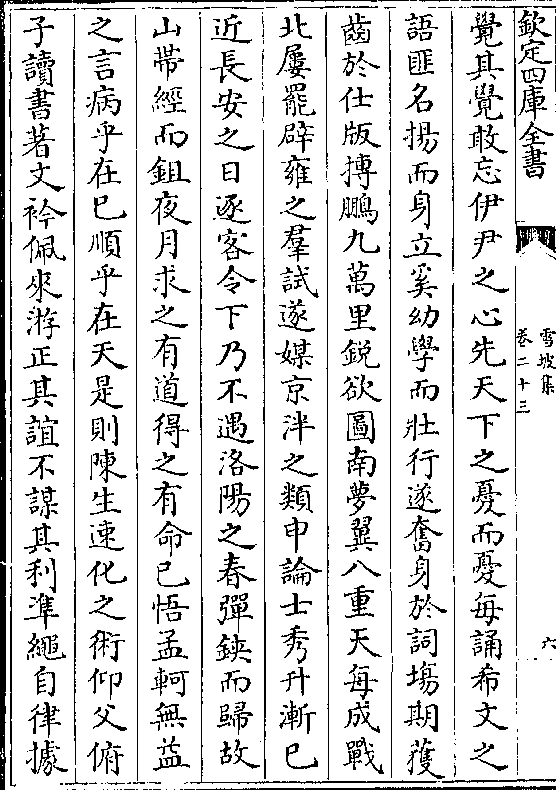 欽定四庫全書
雪坡集
卷二十三
六
覺其覺敢忘伊尹之心先天下之憂而憂每誦希文之
語匪名揚而身立奚幼學而壯行遂奮身於詞場期獲
齒於仕版摶鵬九萬里鋭欲圖南夢翼八重天每成戰
北屢罷辟雍之羣試遂媒京泮之類申論士秀升漸已
近長安之日逐客令下乃不遇洛陽之春彈鋏而歸故
山帶經而鉏夜月求之有道得之有命已悟孟軻無益
之言病乎在己順乎在天是則陳生速化之術仰父俯
子讀書著文衿佩來游正其誼不謀其利準繩自律據